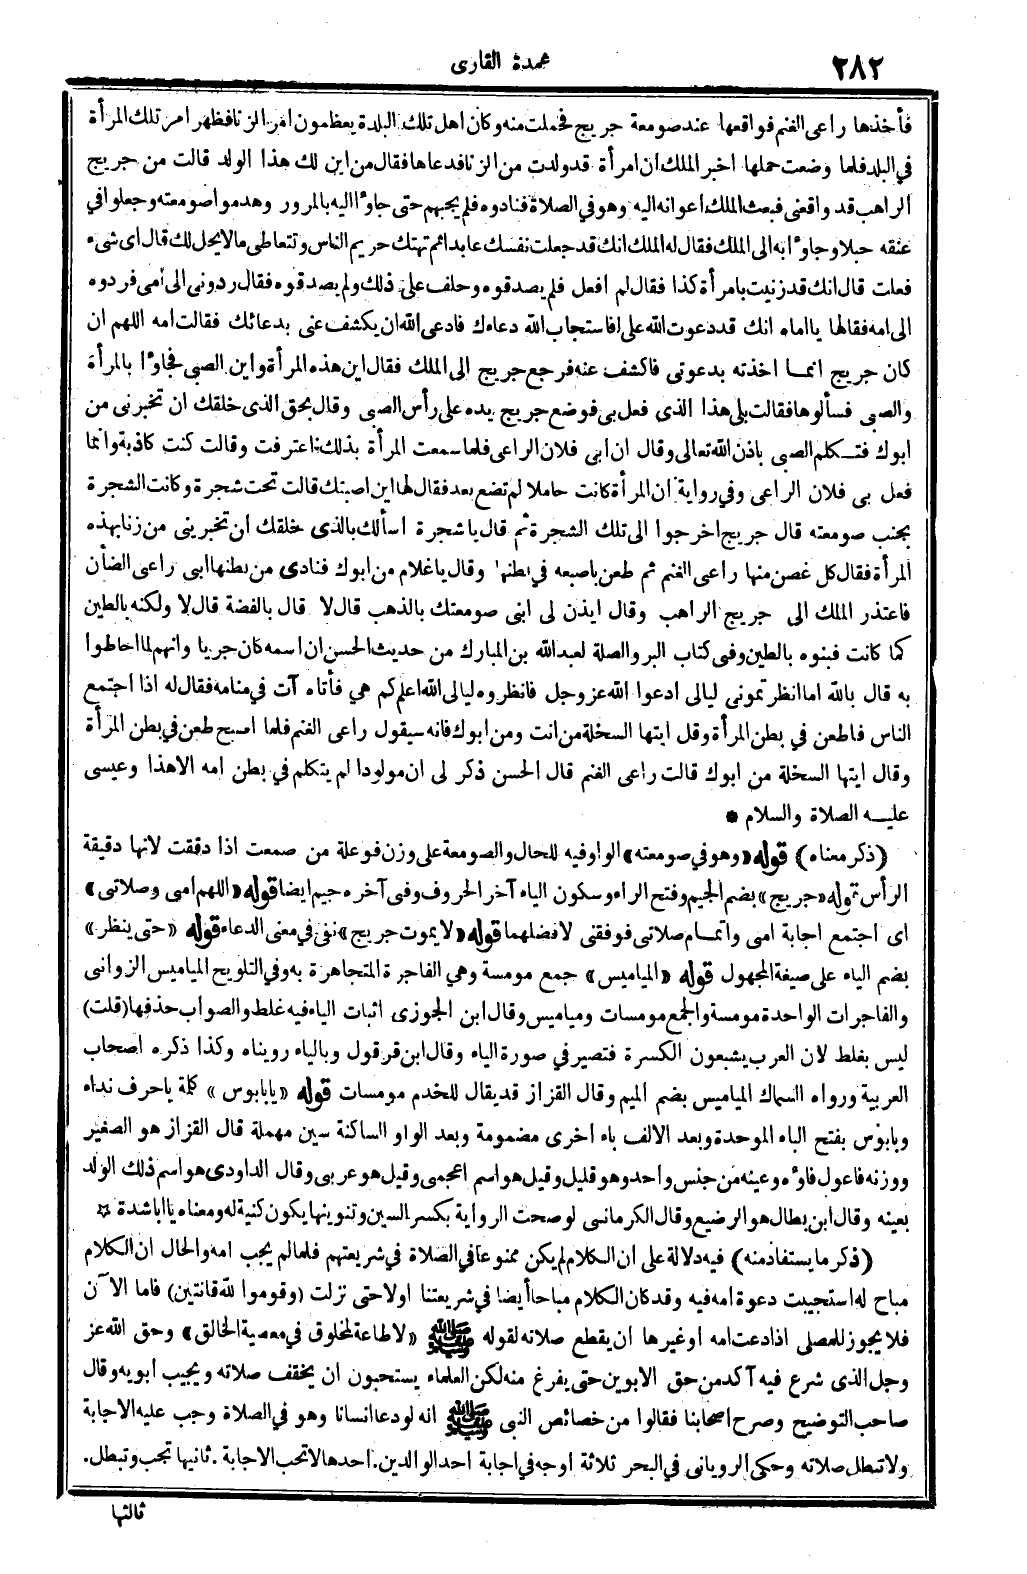 ٢٨٢
عمدة القارى
فأخذها راعى الغنم فواقعها عند صومعة جريج فحملت منه وكان اهل تلك البلدة يعظمون امر الزنا فظهر امر تلك المرأة
في البلد فلما وضعت حملها اخبر الملك ان امرأة قدولدت من الزنا فدعاها فقال من اين لك هذا الولد قالت من جريج
الراهب قد واقعنى فبعث الملك اعوانه اليه وهو في الصلاة فنادوه فلم يجبهم حتى جاؤا اليه بالمرور وهدموا صومعته وجعلوا في
عنقه حبلا وجاؤا به الى الملك فقال له الملك انك قد جعلت نفسك عابدا ثم تهتك حريم الناس وتتعاطى مالا يحل لك قال اى شىء
فعلت قال انك قد زنيت بامرأة كذا فقال لم افعل فلم يصدقوه وحلف على ذلك ولم يصدقوه فقال ردونى الى أمى فردوه
الى امه فقال لها يا اماه انك قد دعوت الله على فاستجاب الله دعاءك فادعى الله ان يكشف عنى بدعائك فقالت امه اللهم ان
كان جريج انمـا اخذته بدعوتى فاكشف عنه فرجع جريج الى الملك فقال اين هذه المرأة واين الصبى فجاؤا بالمرأة
والصبى فسألوها فقالت بلى هذا الذى فعل بى فوضع جريج يده على رأس الصبى وقال بحق الذى خلقك ان تخبرنى من
ابوك فتـكلم الصبى باذن الله تعالى وقال ان ابى فلان الراعى فلما سمعت المرأة بذلك اعترفت وقالت كنت كاذبة وانما
فعل بى فلان الراعى وفي رواية ان المرأة كانت حاملا لم تضع بعد فقال لها اين اصبتك قالت تحت شجرة وكانت الشجرة
بجنب صومعته قال جريج اخرجوا الى تلك الشجرة ثم قال يا شجرة اسألك بالذى خلقك أن تخبرينى من زنا بهذه
المرأة فقال كل غصن منها راعى الغنم ثم طعن باصبعه في بطنها وقال يا غلام من ابوك فنادى من بطنها ابى راعى الضأن
فاعتذر الملك الى جريج الراهب وقال ايذن لى ابنى صومعتك بالذهب قال لا قال بالفضة قال لا ولكنه بالطين
كما كانت فبنوه بالطين وفى كتاب البر والصلة لعبد الله بن المبارك من حديث الحسن ان اسمه كان جريا وانهم لما احاطوا
به قال بالله اما انظرتمونى ليالى ادعوا الله عز وجل فانظروه ليالى الله اعلم كم هي فأتاه آت في منامه فقال له اذا اجتمع
الناس فاطعن في بطن المرأة وقل ايتها السخلة من انت ومن ابوك فانه سيقول راعى الغنم فلما اصبح طعن في بطن المرأة
وقال ايتها السخلة من ابوك قالت راعى الغنم قال الحسن ذكر لى ان مولودا لم يتكلم في بطن امه الا هذا وعيسى
عليـه الصلاة والسلام ●
(ذكر معناه) قوله «وهو في صومعته» الواو فيه للحال والصومعة على وزن فوعلة من صمعت اذا دققت لانها دقيقة
الرأس قوله «جريج» بضم الجيم وفتح الراء وسكون الياء آخر الحروف وفى آخره جيم ايضا قوله «اللهم امى وصلاتى»
اى اجتمع اجابة امى واتمـام صلاتى فوفقنى لافضلهما قوله «لا يموت جريج» نفى في معنى الدعاء قوله «حتى ينظر»
بضم الياء على صيغة المجهول قوله «المياميس» جمع مومسة وهي الفاجرة المتجاهرة به وفي التلويح المياميس الزوانى
والفاجرات الواحدة مومسة والجمع مومسات ومياميس وقال ابن الجوزى اثبات الياء فيه غلط والصواب حذفها (قلت)
ليس بغلط لان العرب يشبعون الكسرة فتصير في صورة الياء وقال ابن قرقول وبالياء رويناه وكذا ذكره اصحاب
العربية ورواه السماك المياميس بضم الميم وقال القزاز قد يقال للخدم مومسات قوله «يا بابوس» كلمة يا حرف نداء
وبابوس بفتح الباء الموحدة وبعد الالف باء اخرى مضمومة وبعد الواو الساكنة سين مهملة قال القزاز هو الصغير
ووزنه فاعول فاؤه وعينه من جنس واحد وهو قليل وقيل هو اسم اعجمى وقيل هو عربى وقال الداودى هو اسم ذلك الولد
بعينه وقال ابن بطال هو الرضيع وقال الكرمانى لو صحت الرواية بكسر السين وتنوينها يكون كنية له ومعناه يا ابا شدة ☆
(ذكر ما يستفاد منه) فيه دلالة على ان الكلام لم يكن ممنوعا في الصلاة في شريعتهم فلما لم يجب امه والحال ان الكلام
مباح له استجيبت دعوة امه فيه وقد كان الكلام مباحا أيضا في شريعتنا اولا حتى نزلت (وقوموا لله قانتين) فاما الآن
فلا يجوز للمصلى اذا دعت امه او غيرها ان يقطع صلاته لقوله ﷺ «لا طاعة لمخلوق في معصية الخالق» وحق الله عز
وجل الذى شرع فيه آكد من حق الابوين حتى يفرغ منه لكن العلماء يستحبون ان يخفف صلاته ويجيب أبويه وقال
صاحب التوضيح وصرح اصحابنا فقالوا من خصائص النبى ﷺ انه لو دعا انسانا وهو في الصلاة وجب عليه الاجابة
ولا تبطل صلاته وحكى الرويانى في البحر ثلاثة اوجه في اجابة احد الوالدين. احدها لا تجب الاجابة. ثانيها تجب وتبطل.
ثالثها